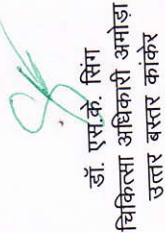 डॉ. एस.के. सिंग
चिकित्सा अधिकारी अमोड़ा
उत्तर बस्तर कांकेर